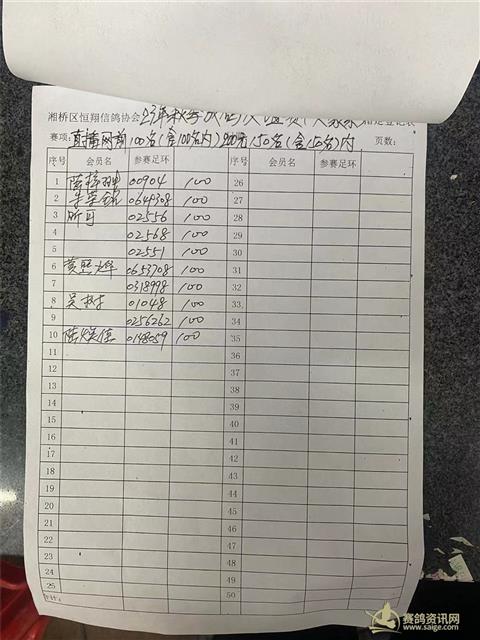 湘桥区恒翔信鸽协会23年秋季 指定登记表
赛项: 直播网前100名(含100名内)200元150名(含150名)内 页数:
序号 会员名 参赛足环 序号 会员名 参赛足环
1 00904 100 26
2 0649308 100 27
3 昕可 02556 100 28
4 02568 100 29
5 02551 100 30
6 黄照华 0653708 100 31
7 0318998 100 32
8 吴 01048 100 33
9 0256262 100 34
10 陆 0148059 100 35
11 36
12 37
13 38
14 39
15 40
16 41
17 42
18 43
19 44
20 45
21 46
22 47
23 48
24 49
25 50
合计:
赛鸽资讯网
www.saige.com